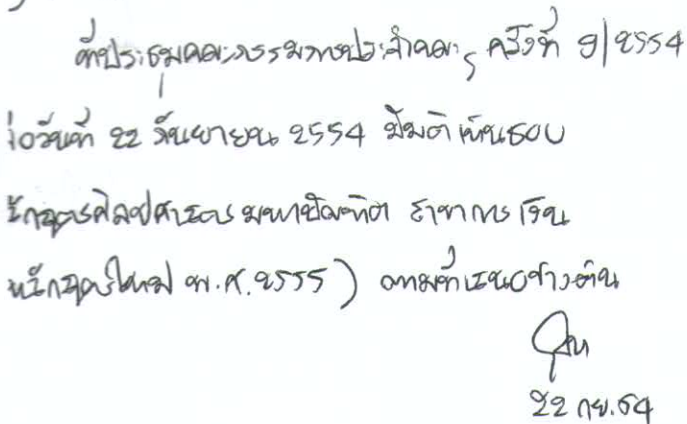 ที่ประชุมคณะกรรมการประจำคณะฯ ครั้งที่ 9/2554
่อวันที่ 22 กันยายน 2554 มีมติเห็นชอบ
ลักสูตรศิลปศาสตรมหาบัณฑิต สาขาการเงิน
หลักสูตรใหม่ พ.ศ.2555) ตามที่เสนอข้างต้น
22 กย.54